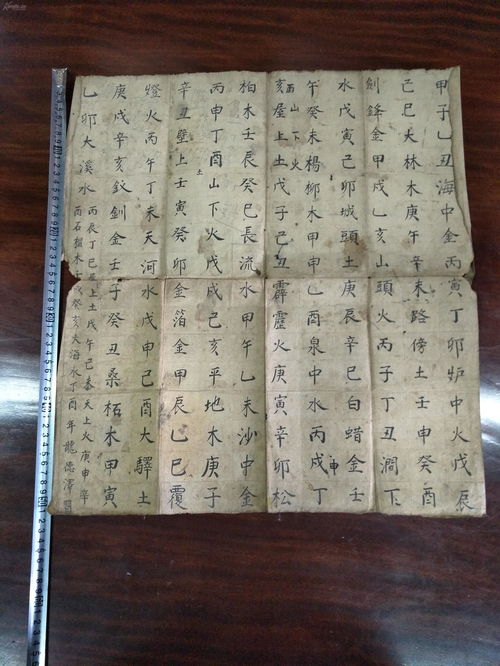 甲子乙丑海中金丙寅丁卯炉中火戊辰
己巳大林木庚午辛未路傍土壬申癸酉
釗鋒金甲戌乙亥山頭火丙子丁丑澗下
水戊寅己卯城頭土庚辰辛巳白蜡金壬
午癸未楊柳木甲申乙酉泉中水丙戌丁
申
山下火
亥屋上土戊子己丑霹靂火庚寅辛卯松
柏木壬辰癸巳長流水甲午乙未沙中金
丙申丁酉山下火戊戌己亥平地木庚子
土
辛丑壁上壬寅癸卯金箔金甲辰乙巳覆
燈火丙午丁未天河水戊申己酉大驛土
庚戌辛亥釵釧金壬子癸丑桑柘木甲寅
乙卯大溪水
丙辰丁巳上土戊午己未天上火庚申辛
酉石榴木戌癸亥大海水丁酉年龍德